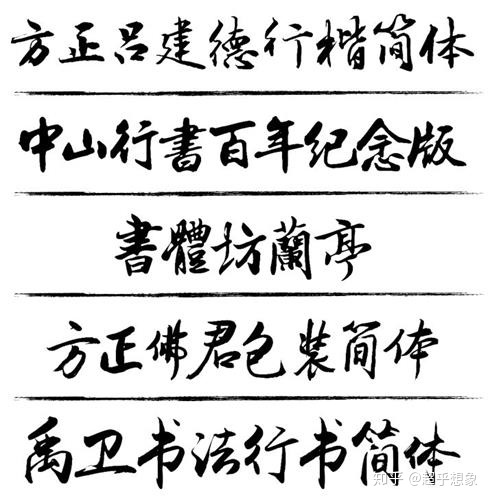 方正吕建德行楷简体
中山行書百年纪念版
書體坊蘭亭
方正佛君包装简体
禹卫书法行书简体
知乎 @超乎想象